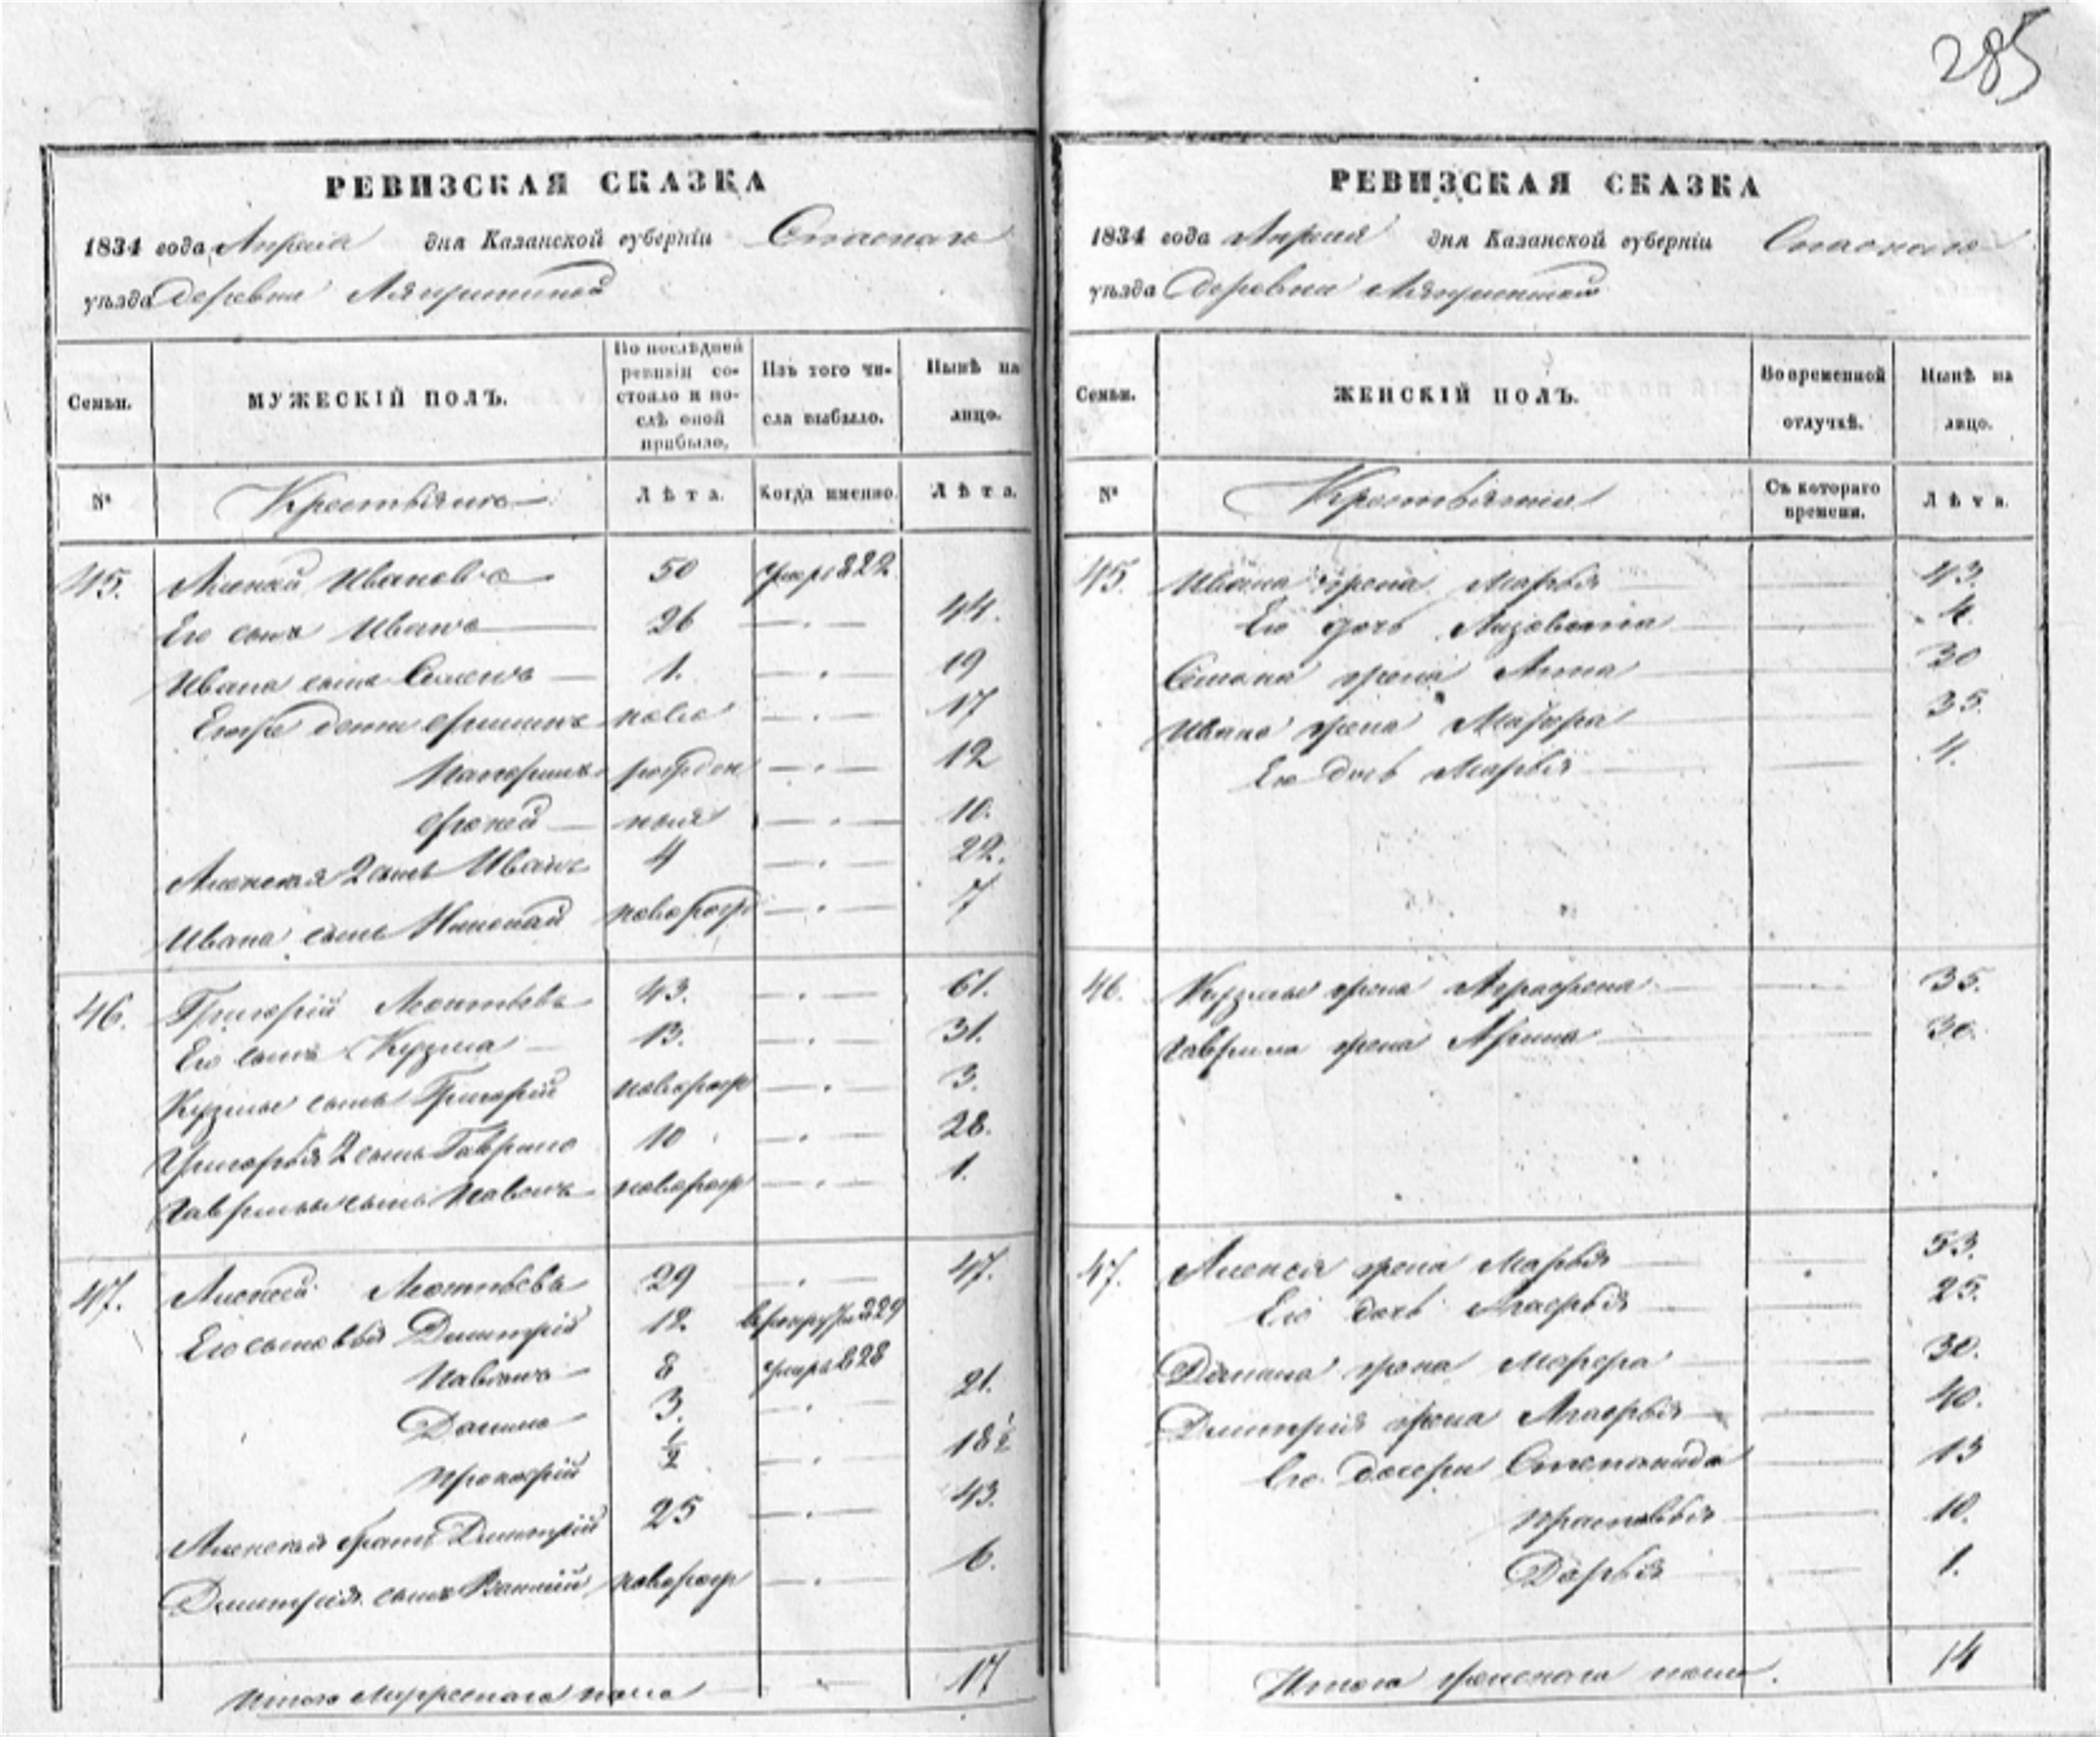 285
РЕВИЗСКАЯ СКАЗКА
1834 года Апреля дня Казанской губерніи Спаскаго
уѣзда Деревни
Семьи.
МУЖЕСКІЙ ПОЛЪ.
По послѣдней ревизіи состояло и послѣ оной прибыло.
Изъ того числа выбыло.
Нынѣ на лицо.
№
Крестьяне
Лѣта.
Когда именно.
Лѣта.
45. Ивановъ 50 умре 822
Его сынъ Иванъ 26 44.
Ивана сынъ Семенъ 1. 19
дети ново 17
рожден 12
ныя 10.
Алексея 2 сынъ Иванъ 4 22.
Ивана сынъ Николай новорож 7
46. Григорій Леонтьевъ 43. 61.
Его сынъ Кузма 13. 31.
Кузмы сынъ Григорій новорож 3.
Григорья 2 сынъ Гаврило 10 28.
Гаврилы сынъ Павелъ новорож 1.
47. Алексей Леонтьевъ 29 47.
Его сыновья Дмитрій 12. 829
Павелъ 8 умре 828
Данило 3. 21.
Прокофій 1/2 18 1/2
Алексея братъ Дмитрій 25 43.
Дмитрія сынъ Василій новорож 6.
Итого мужескаго пола 17
РЕВИЗСКАЯ СКАЗКА
1834 года Апреля дня Казанской губерніи Спаскаго
уѣзда Деревни
Семьи.
ЖЕНСКІЙ ПОЛЪ.
Во временной отлучкѣ.
Нынѣ на лицо.
№
Съ котораго времени.
Лѣта.
45. Ивана жена Марья 43.
Его дочь 4.
жена Анна 30
Ивана жена Марфа 35.
Его дочь Марья 4.
46. Кузмы жена Аграфена 35.
Гаврила жена Арина 30.
47. Алексея жена Марья 53.
Его дочь 25.
Данила жена Марфа 30.
Дмитрия жена 40.
Его дочери Степанида 13
Прасковья 10.
Дарья 1.
Итого женскаго пола. 14